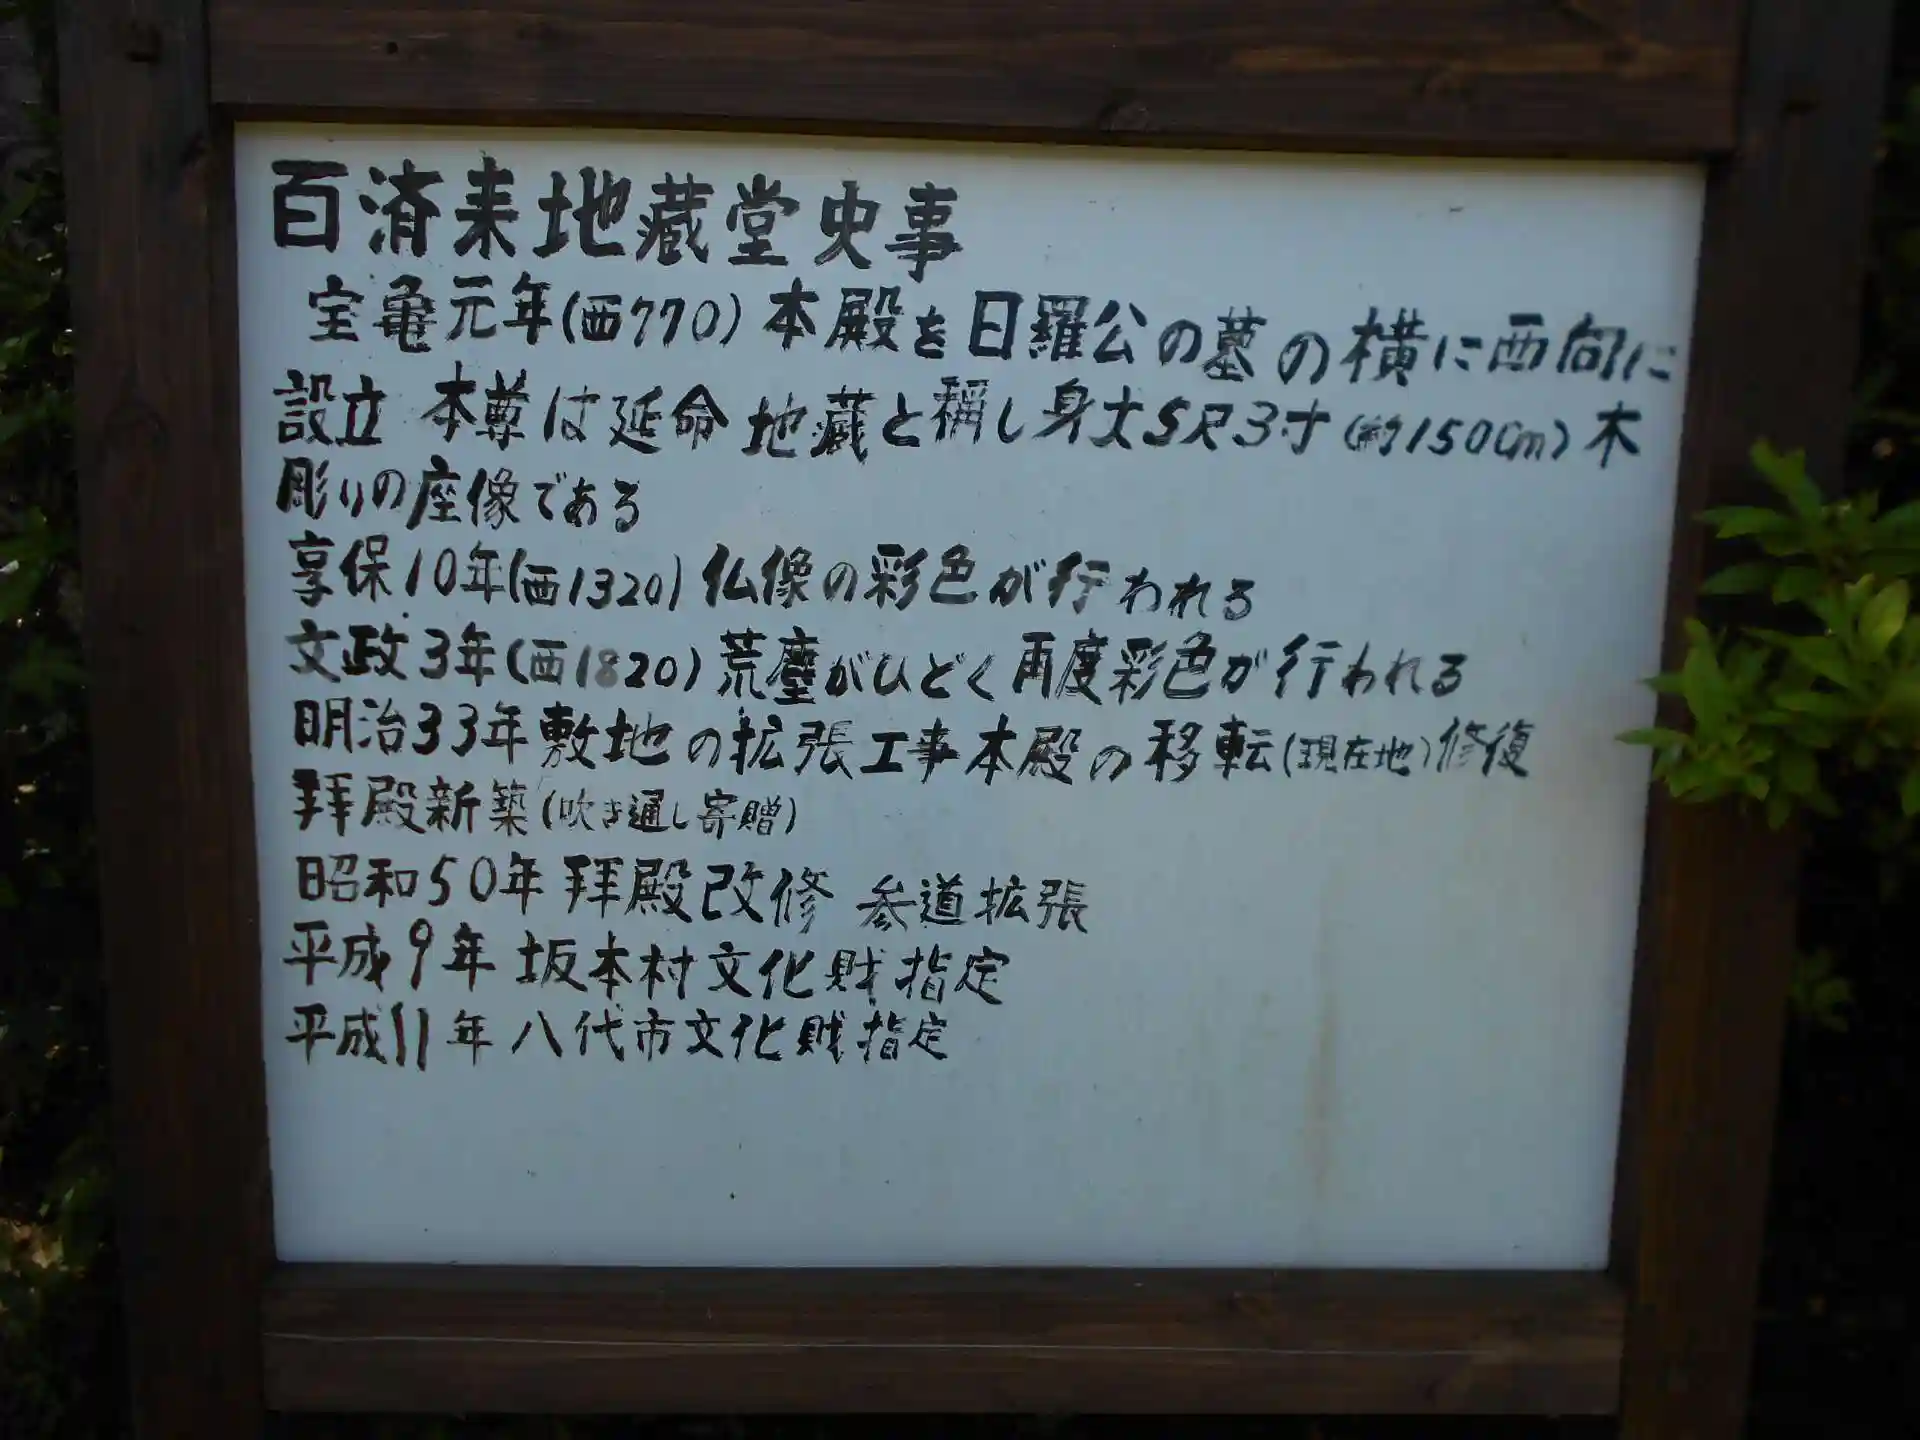 百済来地蔵堂史事
宝亀元年(西770)本殿を日羅公の墓の横に西向に
設立 本尊は延命地蔵と稱し身丈5尺3寸(約150cm)木
彫りの座像である
享保10年(西1320)仏像の彩色が行われる
文政3年(西1820)荒塵がひどく再度彩色が行われる
明治33年敷地の拡張工事本殿の移転(現在地)修復
拝殿新築(吹き通し寄贈)
昭和50年拝殿改修 参道拡張
平成9年 坂本村文化財指定
平成11年 八代市文化財指定